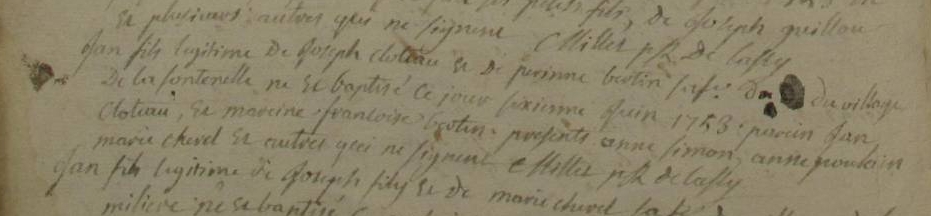 petit fils, de Joseph guillou
Et plusieurs autres qui ne signent CMillet ptr. De Lassy
Jan fils legitime De Joseph cloteau Et de perinne bertin sa fe. Du village
De la fontenelle ne Et baptisé Ce jour sixienne Juin 1753. parein Jan
Cloteau, Et mareine francoise bertin. presents anne simon, anne poulain
marie chevel Et autres qui ne signent CMillet ptr de lassy
Jan fils legitime de Joseph fily Et de marie chevel sa fe
miliere ne Et baptisé